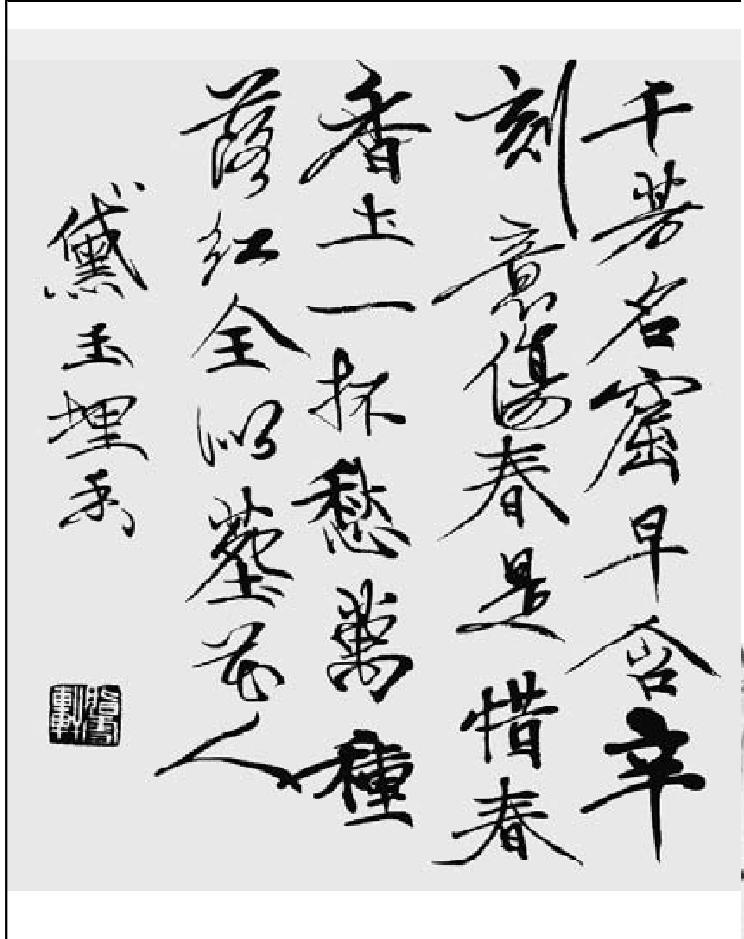 千芳名窟早含辛
刻意傷春是惜春
香土一抔愁萬種
落紅全似塟花人
黛玉埋香